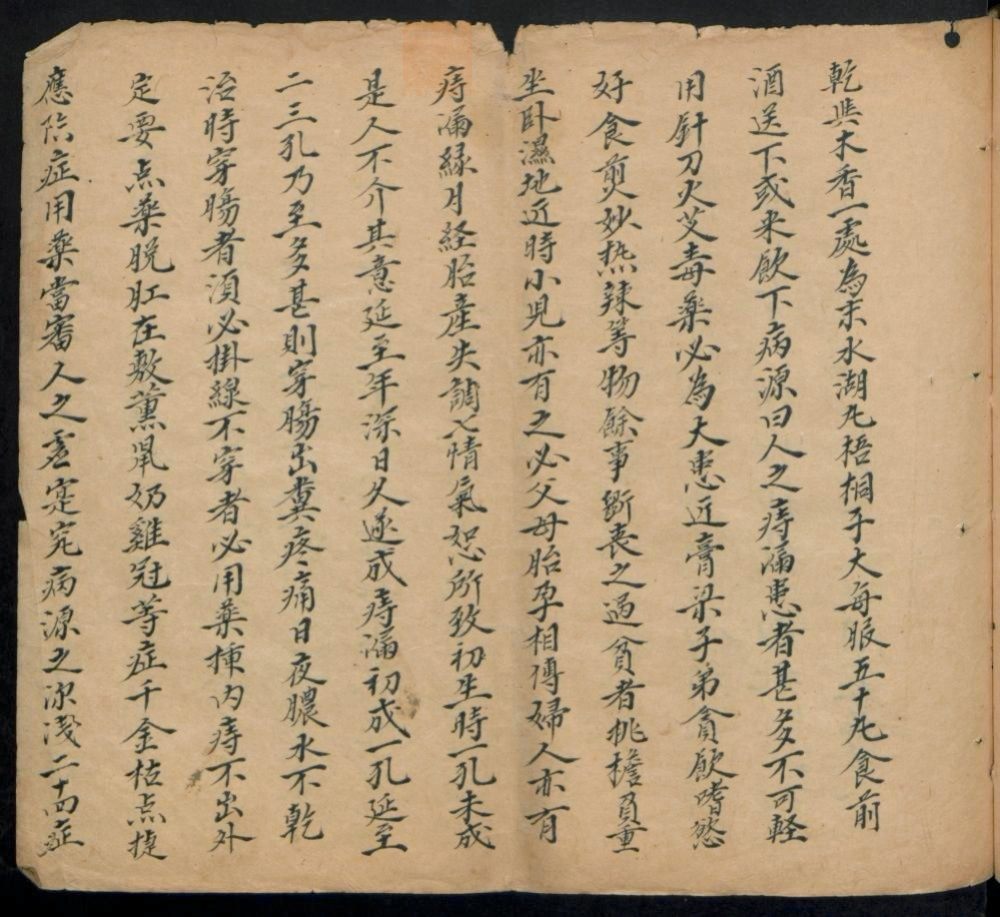 乾與木香一處為末水湖丸梧桐子大每服五十丸食前
酒送下或米飲下病源曰人之痔漏患者甚多不可軽
用針刀火艾毒藥必為大患近膏梁子弟貪飲嗜慾
好食煎炒热辣等物餘事斲丧之過貧者挑擔負重
坐卧濕地近時小児亦有之必父母胎孕相傳婦人亦有
痔漏縁月経胎產失調七情氣怒所致初生時一孔未成
是人不介其意延至年深日久遂成痔漏初成一孔延至
二三孔乃至多甚則穿腸出糞疼痛日夜膿水不乾
治時穿腸者湏必掛線不穿者必用藥揷内痔不出外
定要点藥脱肛在敷薫鼠奶雞冠等症千金枯点捷
應除症用藥當審人之虛寔究病源之深淺二十四症